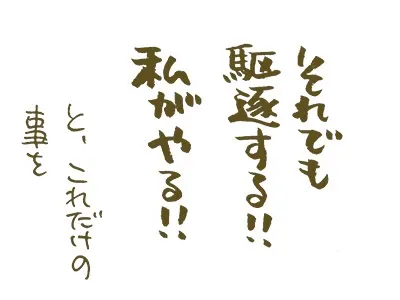 それでも
駆逐する!!
私がやる!!
と、これだけの
事を